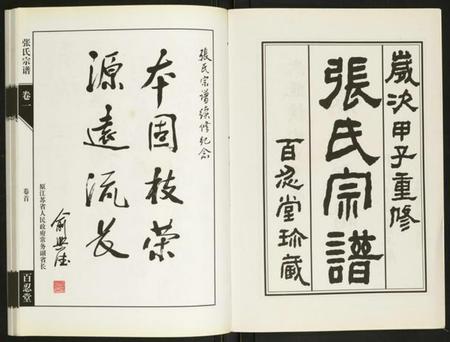 歲次甲子重修
張氏宗譜
百忍堂珍藏
張氏宗譜續修紀念
本固枝榮
源遠流长
原江苏省人民政府常务副省长
俞兴德
张氏宗谱
卷一
卷首
百忍堂